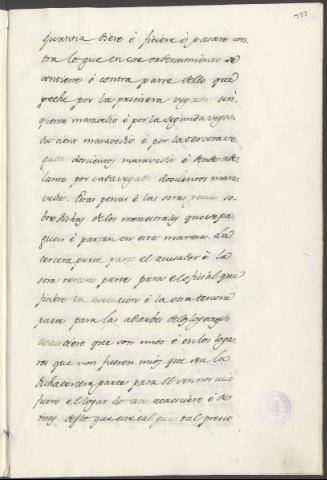 quantia diere ó ficiere ó pasare con
tra lo que en este ordenamiento se
contiene é contra parte dello que
peche por la primera vegada cin
quenta maravedis é por la segunda vega
da cient maravedis é por la tercera ve
gada doscientos maravedis é dende ade
lante por cada vegada doscientos mara
vedis. Estas penas é las otras penas so
bre dichas de los menestrales que se pa
guen é partan en esta manera. La
tercera parte para el acusador é la
otra tercera parte para el oficial que
ficiere la execucion é la otra tercera
parte para la
acaesciere que son mios é en los loga
res que non fueren mios que sea la
dicha tercera parte para el sennor cuio
fuere el logar do acaesciere é de
mas desto que este tal que tal precio